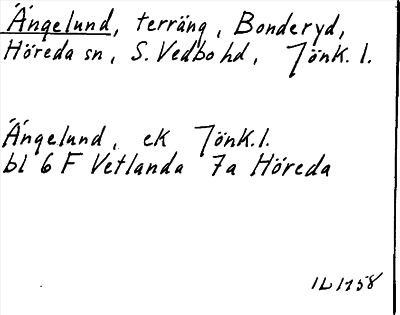 Ängelund, terräng, Bonderyd,
Höreda sn, S. Vedbo hd, Jönk. l.
Ängelund, ek Jönk. l.
bl 6 F Vetlanda 7a Höreda
IL 1958